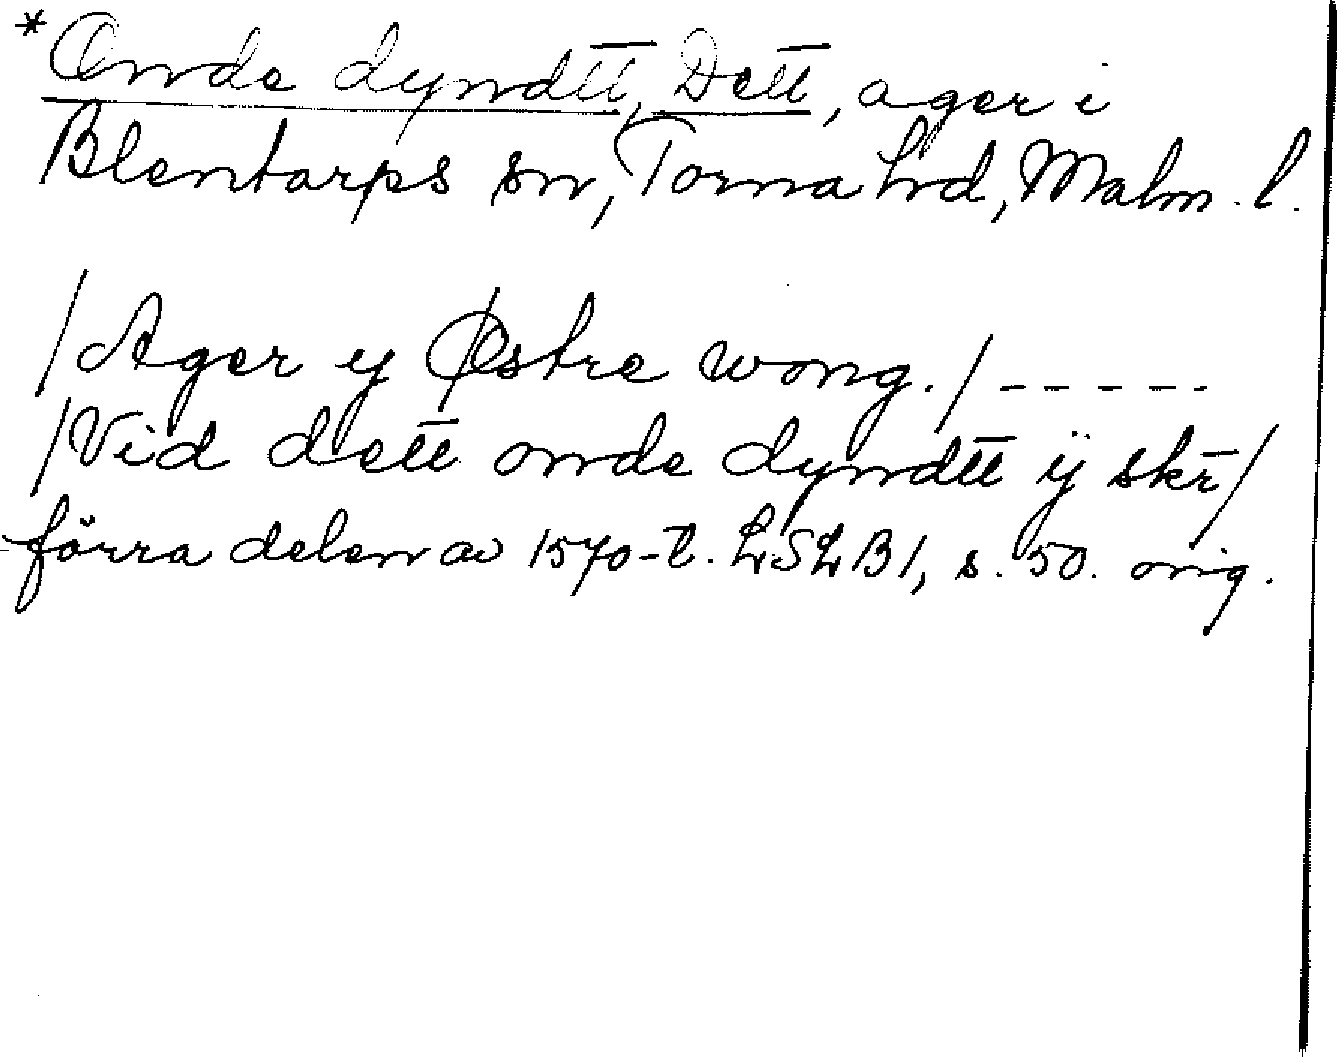 *Onde dyndtt, Dett, ager i
Blentarps sn, Torna hd, Malm. l.
/Ager y Østre wong./ -----
/Vid dett onde dyndtt ÿ skr/
förra delen av 1570-t. LSLB1, s. 50. orig.